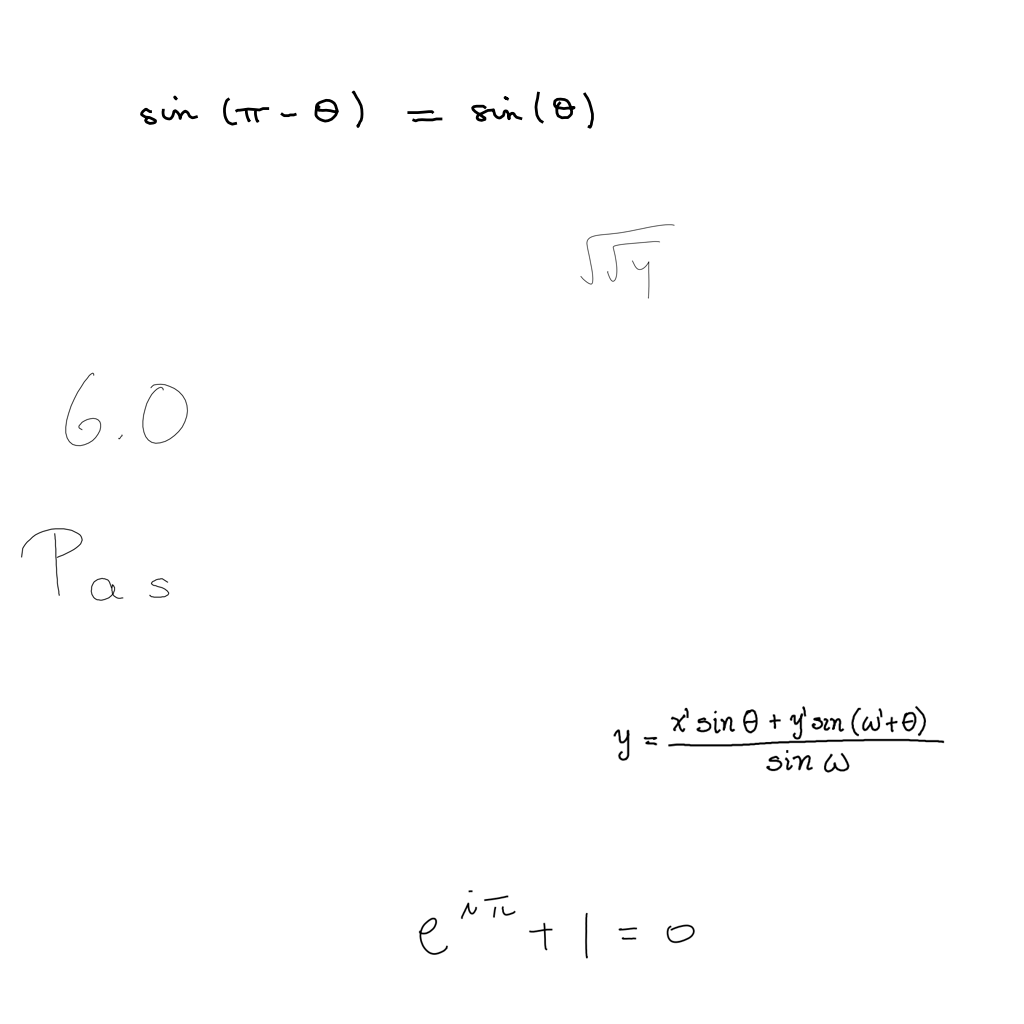 sin (π - θ) = sin(θ)
√√y
6.0
Pas
y = (x' sin θ + y' sin (ω' + θ)) / (sin ω)
e^{iπ} + 1 = 0